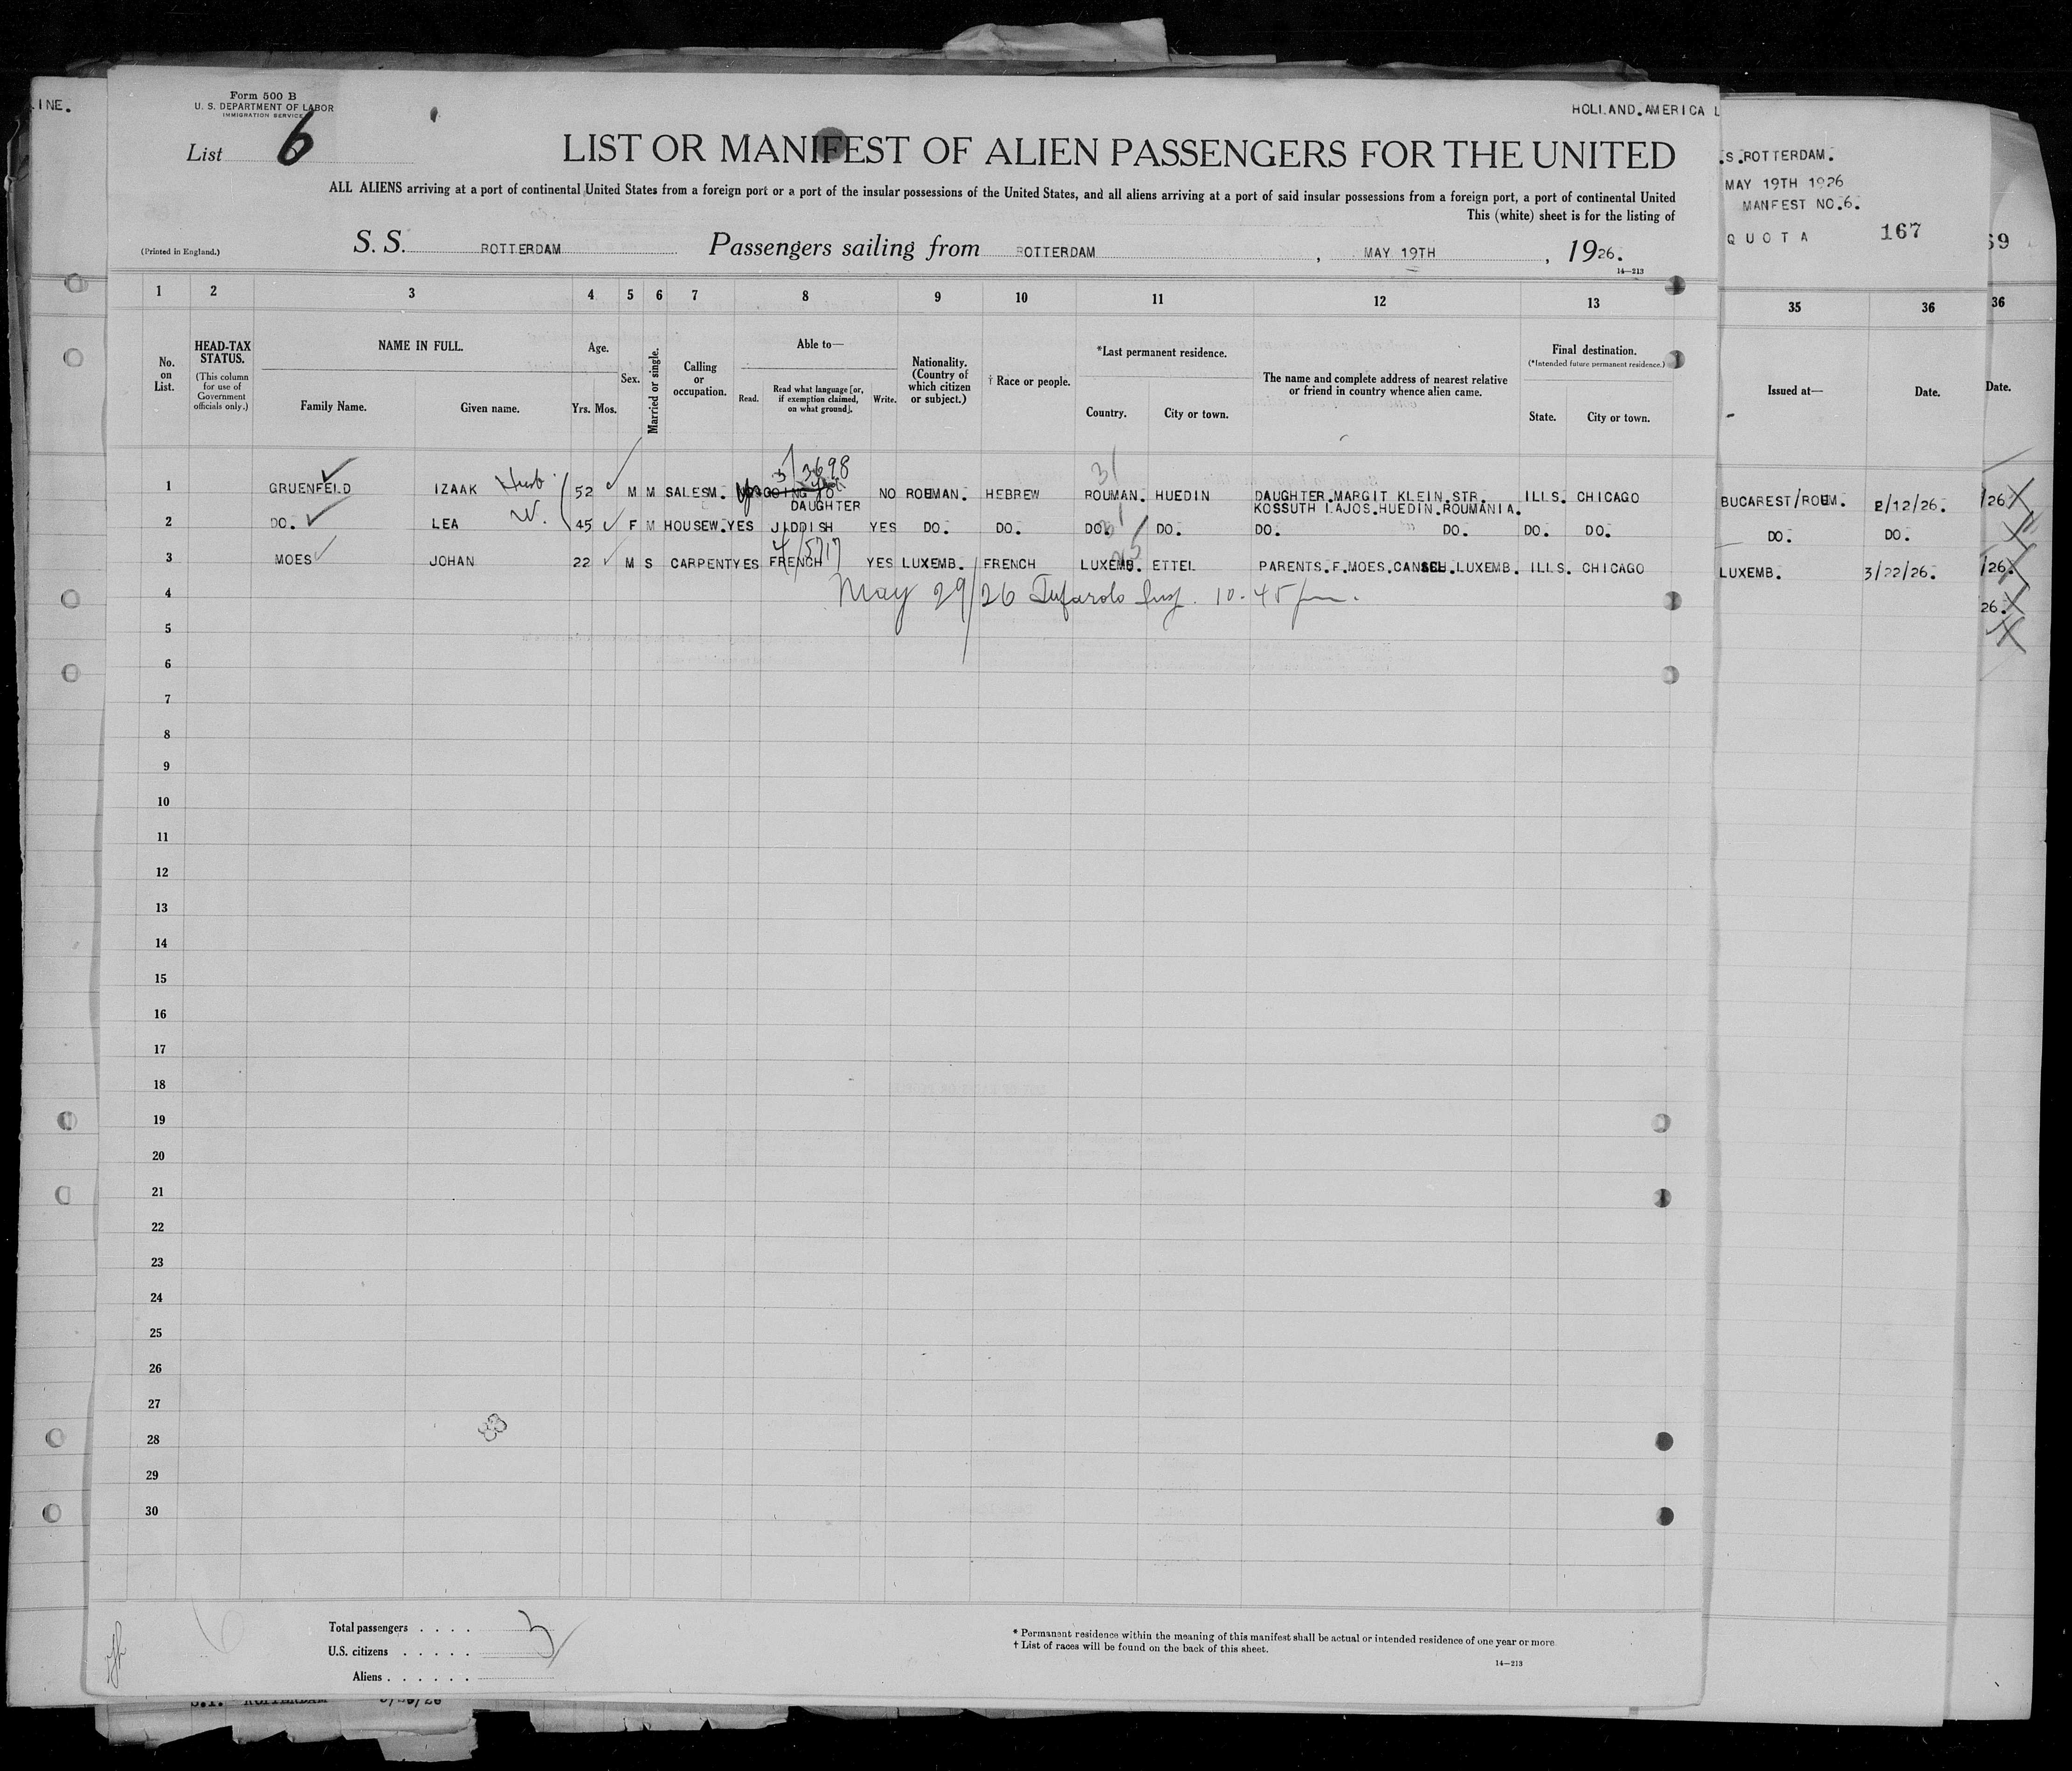 .INE.
Form 500 B
U. S. DEPARTMENT OF LABOR
IMMIGRATION SERVICE
HOLLAND.AMERICA L
List 6
LIST OR MANIFEST OF ALIEN PASSENGERS FOR THE UNITED
ALL ALIENS arriving at a port of continental United States from a foreign port or a port of the insular possessions of the United States, and all aliens arriving at a port of said insular possessions from a foreign port, a port of continental United
This (white) sheet is for the listing of
(Printed in England.)
S. S. ROTTERDAM Passengers sailing from ROTTERDAM , MAY 19TH , 1926.
14—213
.S.ROTTERDAM.
MAY 19TH 1926
MANFEST NO.6.
QUOTA 167
69
1 2 3 4 5 6 7 8 9 10 11 12 13 35 36 36
No. on List.
HEAD-TAX STATUS.
(This column for use of Government officials only.)
NAME IN FULL.
Family Name. Given name.
Age.
Yrs. Mos.
Sex.
Married or single.
Calling or occupation.
Able to—
Read. Read what language [or, if exemption claimed, on what ground]. Write.
Nationality. (Country of which citizen or subject.)
† Race or people.
*Last permanent residence.
Country. City or town.
The name and complete address of nearest relative or friend in country whence alien came.
Final destination.
(*Intended future permanent residence.)
State. City or town.
Issued at— Date. Date.
3/3698
31
1 GRUENFELD IZAAK Husb. 52 M M SALESM. GOING TO NO ROUMAN. HEBREW ROUMAN. HUEDIN DAUGHTER.MARGIT KLEIN.STR. ILLS. CHICAGO BUCAREST/ROUM. 2/12/26. /26
DAUGHTER KOSSUTH LAJOS.HUEDIN.ROUMANIA.
2 DO. LEA W. 45 F M HOUSEW. YES JIDDISH YES DO. DO. DO. DO. DO. " DO. DO. DO. DO. DO.
4/5717
3 MOES JOHAN 22 M S CARPENT YES FRENCH YES LUXEMB. FRENCH LUXEMB. ETTEL PARENTS.F.MOES.CANSCH.LUXEMB. ILLS. CHICAGO LUXEMB. 3/22/26. /26
4 May 29/26 Tufarolo Insp. 10-45 pm. 26.
5
6
7
8
9
10
11
12
13
14
15
16
17
18
19
20
21
22
23
24
25
26
27
28
29
30
6
Total passengers . . . . 3
U.S. citizens . . . . .
Aliens . . . . . .
* Permanent residence within the meaning of this manifest shall be actual or intended residence of one year or more.
† List of races will be found on the back of this sheet.
14—213
S.T. ROTTERDAM